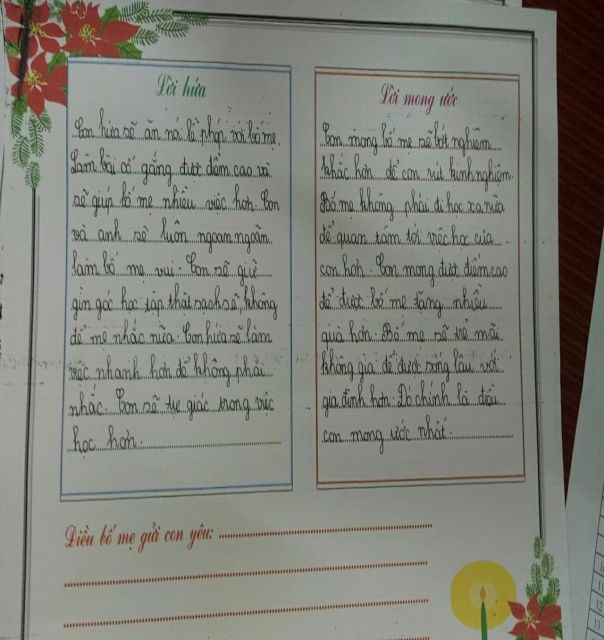 Lời hứa
Con hứa sẽ ăn nói lễ phép với bố mẹ.
Làm bài cố gắng được điểm cao và
sẽ giúp bố mẹ nhiều việc hơn. Con
và anh sẽ luôn ngoan ngoãn
làm bố mẹ vui. Con sẽ giữ
gìn góc học tập thật sạch sẽ, không
để mẹ nhắc nữa. Con hứa sẽ làm
việc nhanh hơn để không phải
nhắc. Con sẽ tự giác trong việc
học hơn.
Lời mong ước
Con mong bố mẹ sẽ bớt nghiêm
khắc hơn để con rút kinh nghiệm.
Bố mẹ không phải đi học xa nữa
để quan tâm tới việc học của
con hơn. Con mong được điểm cao
để được bố mẹ tặng nhiều
quà hơn. Bố mẹ sẽ trẻ mãi
không già để được sống lâu với
gia đình hơn. Đó chính là điều
con mong ước nhất.
Điều bố mẹ gửi con yêu:
11
12
13